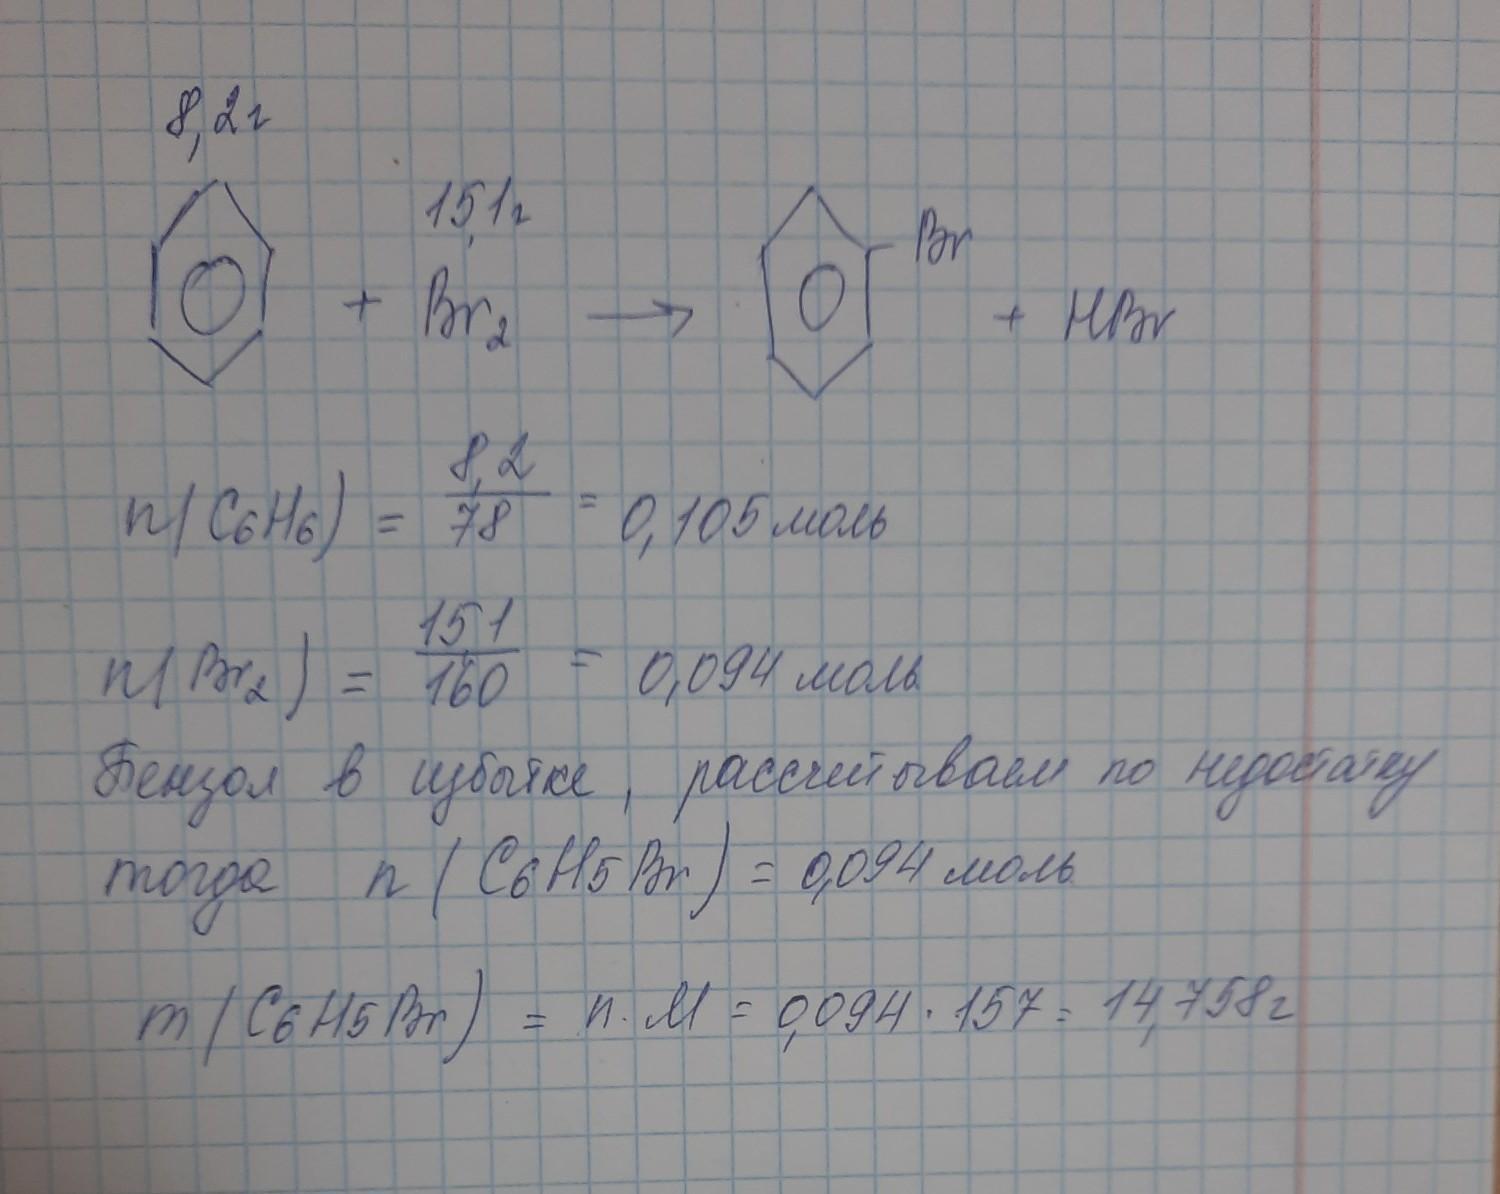 8,2г
15,1г
+ Br2 → Br + HBr
n(C6H6) = 8,2/78 = 0,105 моль
n(Br2) = 15,1/160 = 0,094 моль
Бензол в избытке, рассчитываем по недостатку
тогда n(C6H5Br) = 0,094 моль
m(C6H5Br) = n·M = 0,094 · 157 = 14,758г